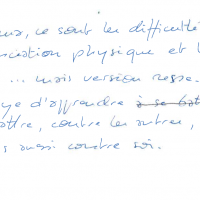 ce sont les difficulté
ciation physique et
... mais version
d'apprendre à se bat
ttre, contre les autres,
s aussi contre soi.